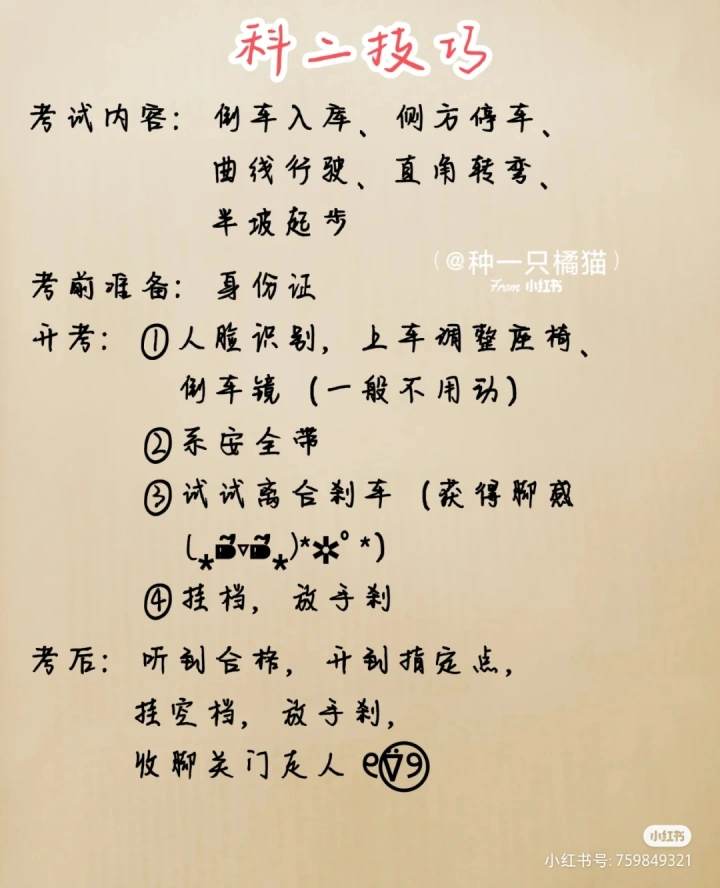 科二技巧
考试内容：倒车入库、侧方停车、
曲线行驶、直角转弯、
半坡起步
（@种一只橘猫）
From 小红书
考前准备：身份证
开考：①人脸识别，上车调整座椅、
倒车镜（一般不用动）
②系安全带
③试试离合刹车（获得脚感
④挂档，放手刹
考后：听到合格，开到指定点，
挂空档，放手刹，
收脚关门走人
小红书
小红书号: 759849321